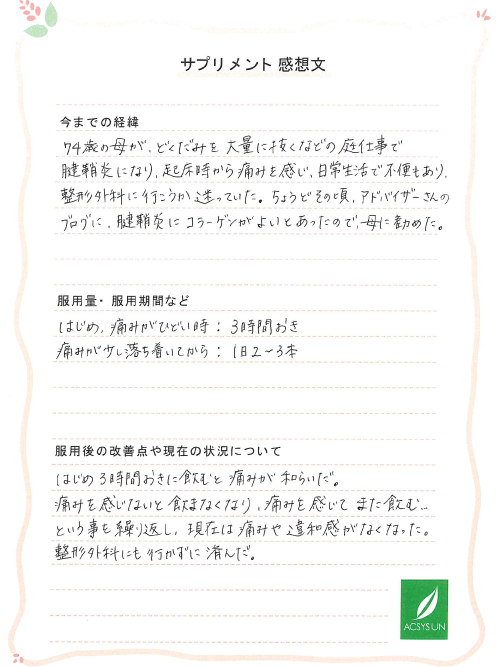 サプリメント 感想文
今までの経緯
74歳の母が、どくだみを大量に抜くなどの庭仕事で
腱鞘炎になり、起床時から痛みを感じ、日常生活で不便もあり、
整形外科に行こうか迷っていた。ちょうどその頃、アドバイザーさんの
ブログに、腱鞘炎にコラーゲンがよいとあったので、母に勧めた。
服用量・服用期間など
はじめ、痛みがひどい時：3時間おき
痛みが少し落ち着いてから：1日2〜3本
服用後の改善点や現在の状況について
はじめ3時間おきに飲むと痛みが和らいだ。
痛みを感じないと飲まなくなり、痛みを感じてまた飲む…
という事を繰り返し、現在は痛みや違和感がなくなった。
整形外科にも行かずに済んだ。
ACSYSUN